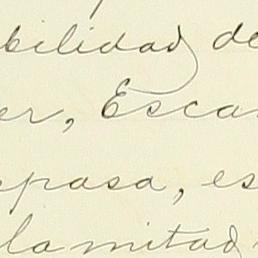 bilidad de
er, Esca
epasa, es
la mitad